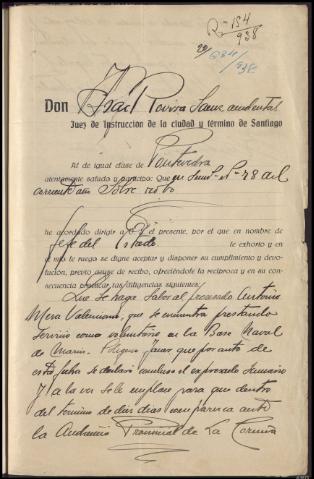 R-184
938
934
938
Don Isac Rovira
Juez de Instrucción de la ciudad y término de Santiago
Al de igual clase de Pontevedra
atentamente saludo y participo: Que en sum.º nº 78 del
corriente año sobre robo
he acordado dirigir a V. el presente, por el que en nombre de
Jefe del Estado le exhorto y en
el mío le ruego se digne aceptar y disponer su cumplimiento y devo-
lución, previo acuse de recibo, ofreciéndole la recíproca y en su con-
secuencia practicar las diligencias siguientes:
Que se haga saber al procesado Antonio
Mera que se encuentra prestando
servicio como voluntario en la Base Naval
de Marin. Polígono Janer que por auto de
esta fecha se declaró concluso el expresado sumario
y a la vez se le emplace para que dentro
del termino de diez dias comparezca ante
la Audiencia Provincial de La Coruña